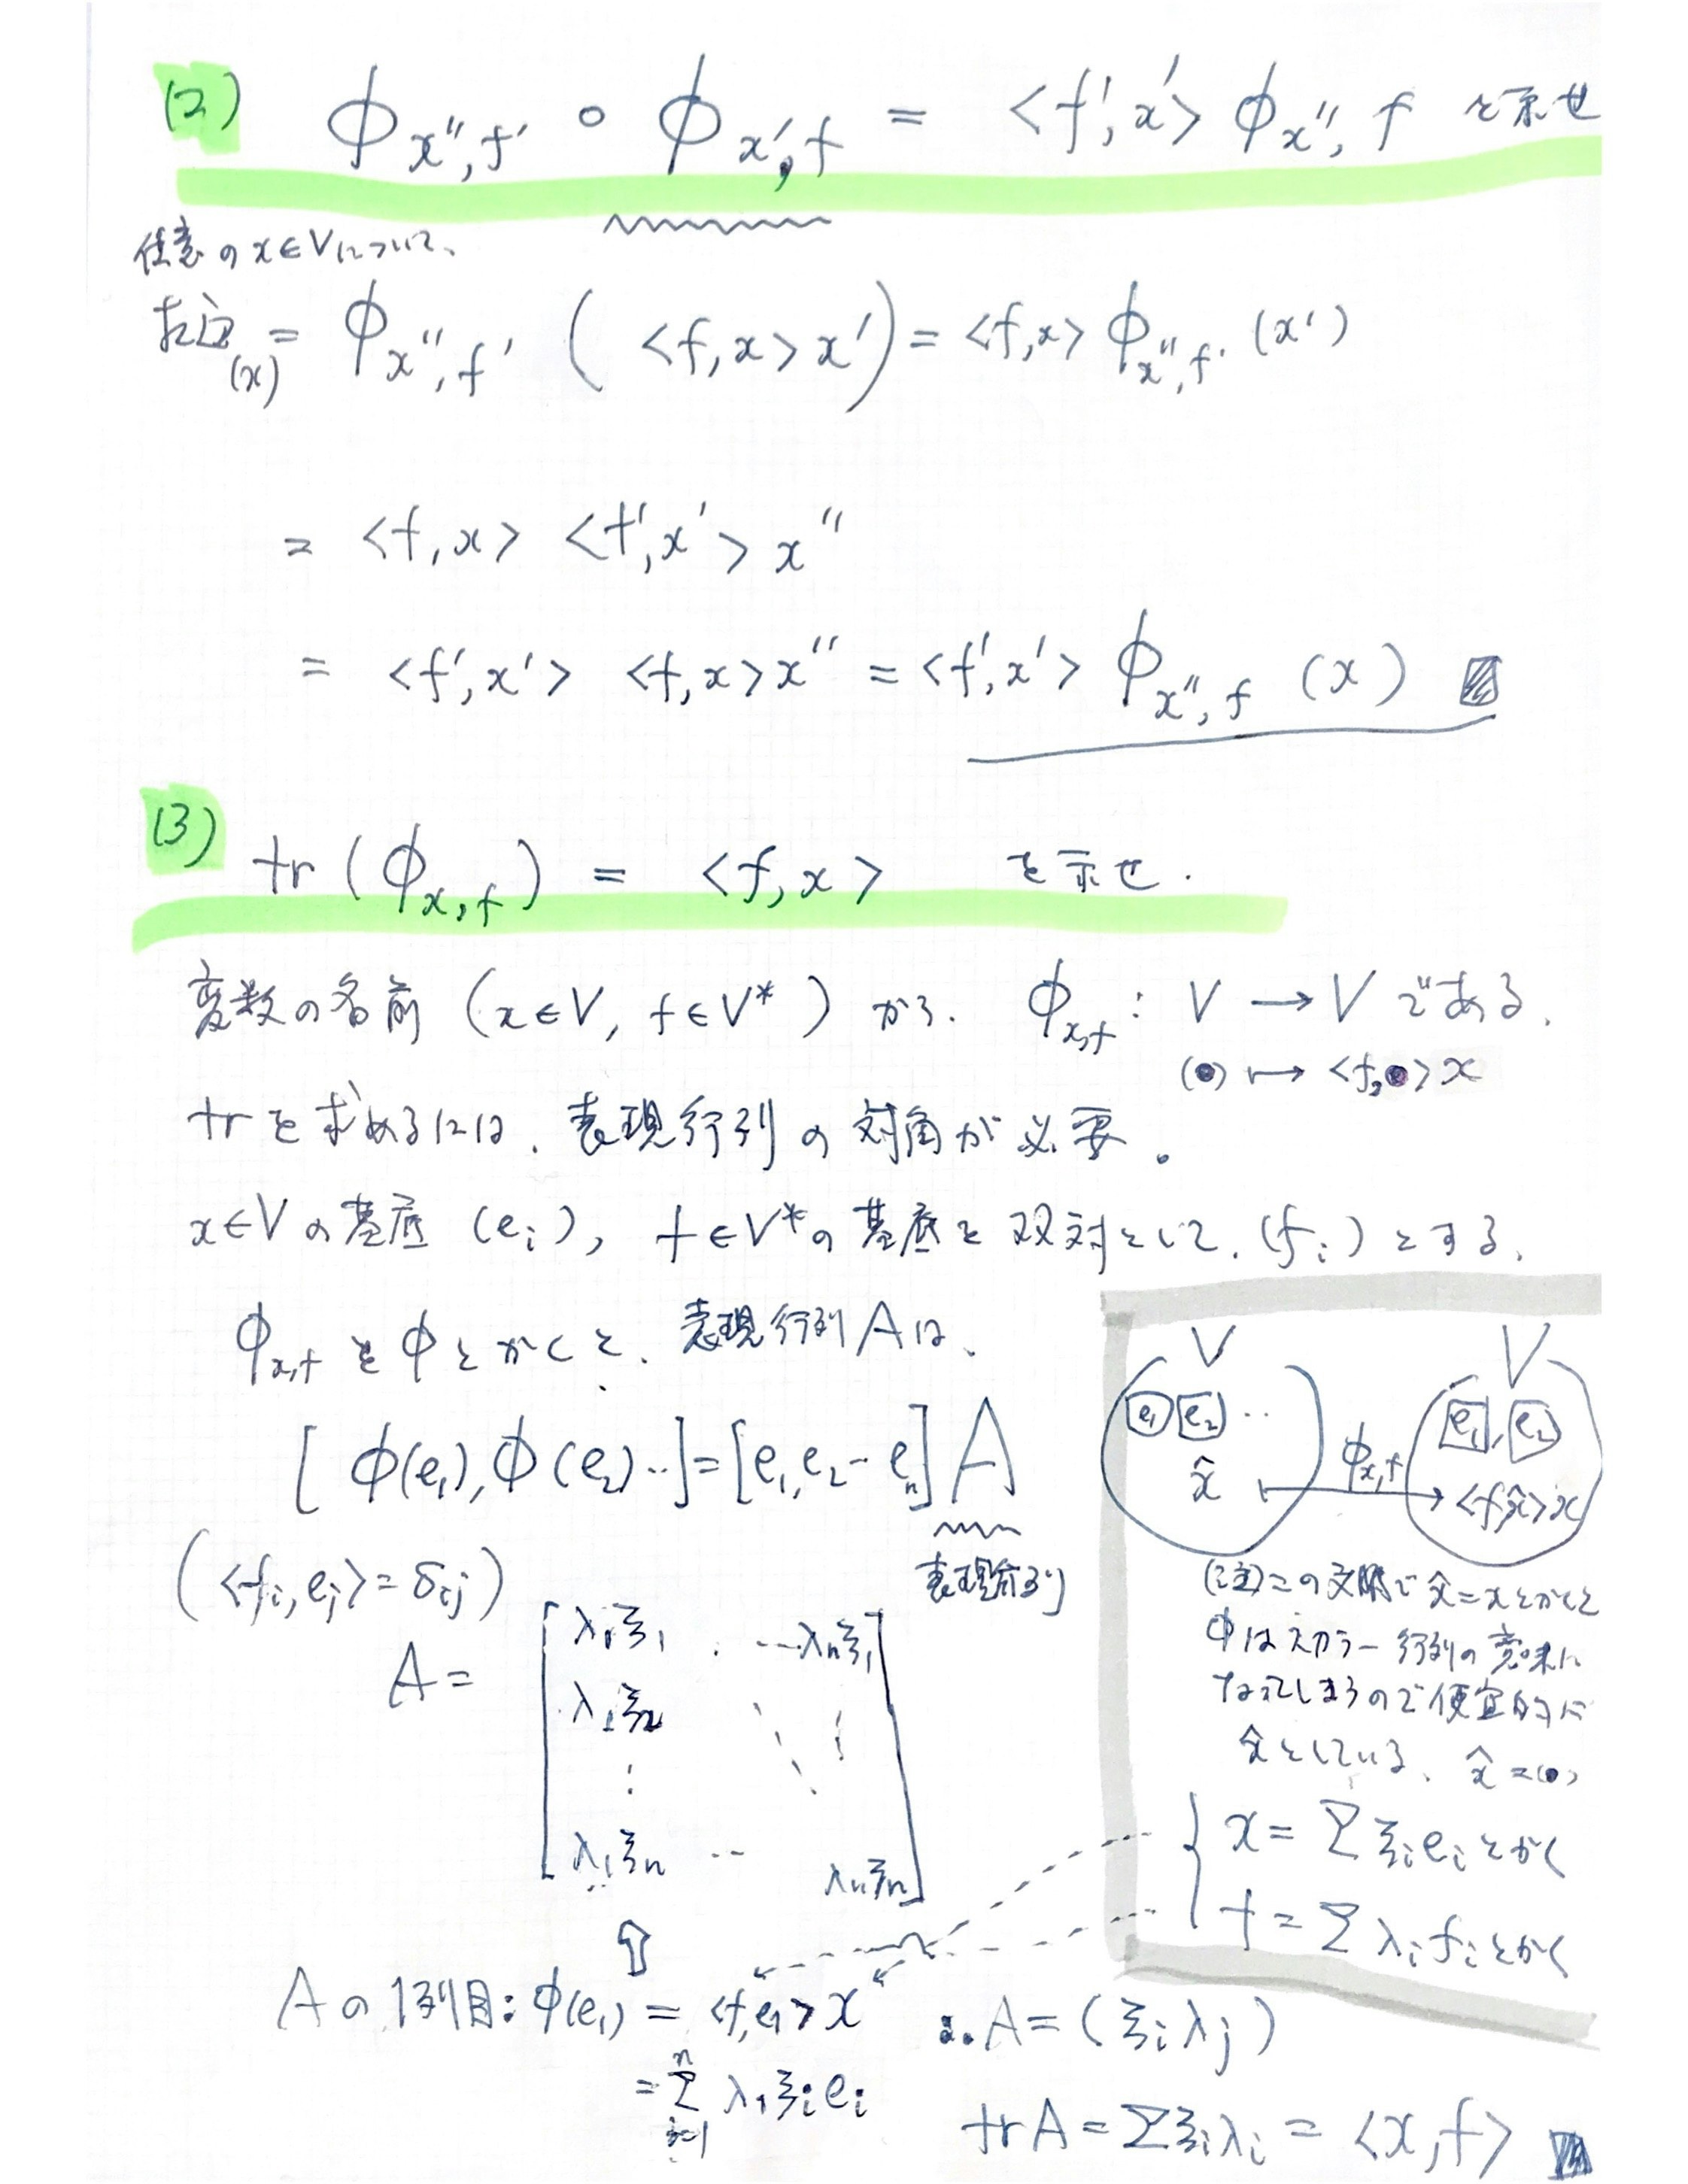 (2) ϕ_{x'',f'} ∘ ϕ_{x',f} = <f',x'> ϕ_{x'',f} を示せ
任意の x∈V について、
左辺(x) = ϕ_{x'',f'} ( <f,x> x' ) = <f,x> ϕ_{x'',f'} (x')
= <f,x> <f',x'> x''
= <f',x'> <f,x> x'' = <f',x'> ϕ_{x'',f} (x)
(3) tr (ϕ_{x,f}) = <f,x> を示せ.
変数の名前 (x∈V, f∈V*) から. ϕ_{x,f} : V → V である.
(●) ↦ <f,●> x
tr を求めるには、表現行列の対角が必要。
x∈V の基底 (e_i), f∈V* の基底を双対として、(f_i) とする.
ϕ_{x,f} を ϕ とかくと、表現行列 A は、
[ ϕ(e_1), ϕ(e_2) ‥ ] = [e_1, e_2 - e_n] A
表現行列
( <f_i, e_j> = δ_{ij} )
A = [ λ_1ξ_1 . ‥‥ λ_nξ_1
λ_1ξ_2
⋮
λ_1ξ_n ‥ λ_nξ_n ]
⇧
A の 1列目: ϕ(e_1) = <f,e_1> x
= Σ_{i=1}^{n} λ_1 ξ_i e_i
V V
e_1 e_2 ‥ e_1, e_2
x̂ ϕ_{x,f} <f,x̂> x
(注) この文脈で x̂ = x とかくと
ϕ はスカラー行列の意味に
なってしまうので便宜的に
x̂ としている. x̂ = (●)
x = Σ ξ_i e_i とかく
f = Σ λ_i f_i とかく
∴ A = ( ξ_i λ_j )
tr A = Σ ξ_i λ_i = <x,f>